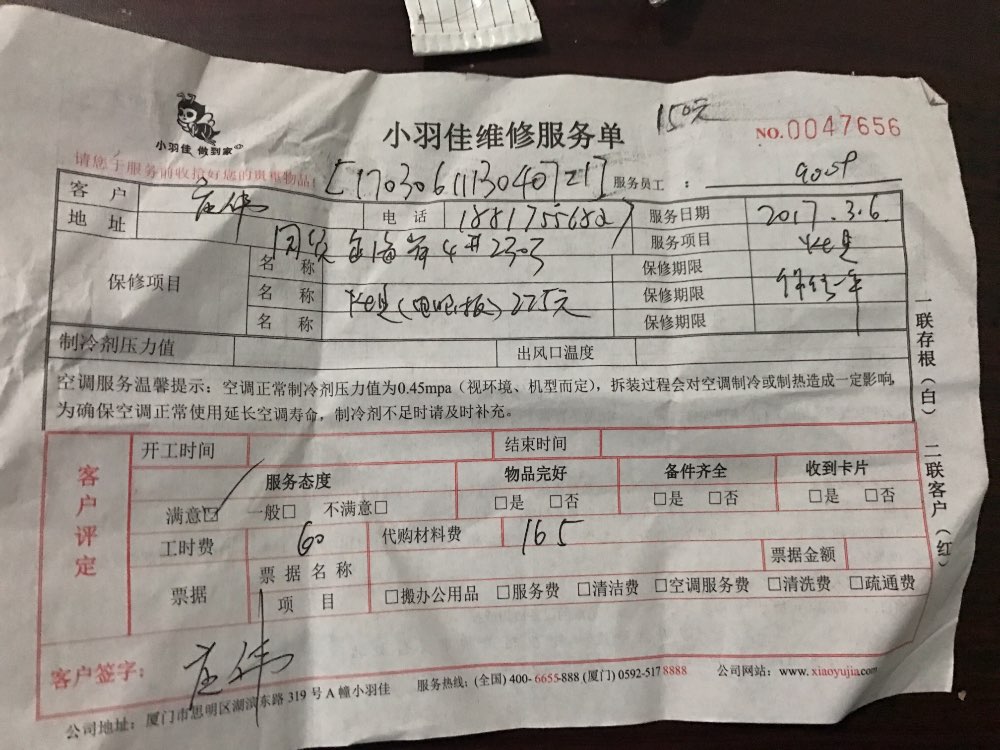 小羽佳 做到家
小羽佳维修服务单
150元
NO.0047656
请您于服务前收拾好您的贵重物品
[170306113040721]
服务员工：
客户 庄伟 电话 18817556827 服务日期 2017.3.6
地址 服务项目
保修项目
名称 保修期限
名称 225元 保修期限 保修一年
名称 保修期限
制冷剂压力值 出风口温度
空调服务温馨提示：空调正常制冷剂压力值为0.45mpa（视环境、机型而定），拆装过程会对空调制冷或制热造成一定影响，
为确保空调正常使用延长空调寿命，制冷剂不足时请及时补充。
客户评定
开工时间 结束时间
服务态度 物品完好 备件齐全 收到卡片
满意☑ 一般□ 不满意□ □是 □否 □是 □否 □是 □否
工时费 60 代购材料费 165
票据 票据名称 票据金额
项目 □搬办公用品 □服务费 □清洁费 □空调服务费 □清洗费 □疏通费
客户签字： 庄伟
公司地址：厦门市思明区湖滨东路 319 号 A 幢小羽佳 服务热线：(全国) 400-6655-888 (厦门) 0592-517 8888 公司网站：www.xiaoyujia.com
一联存根（白） 二联客户（红）